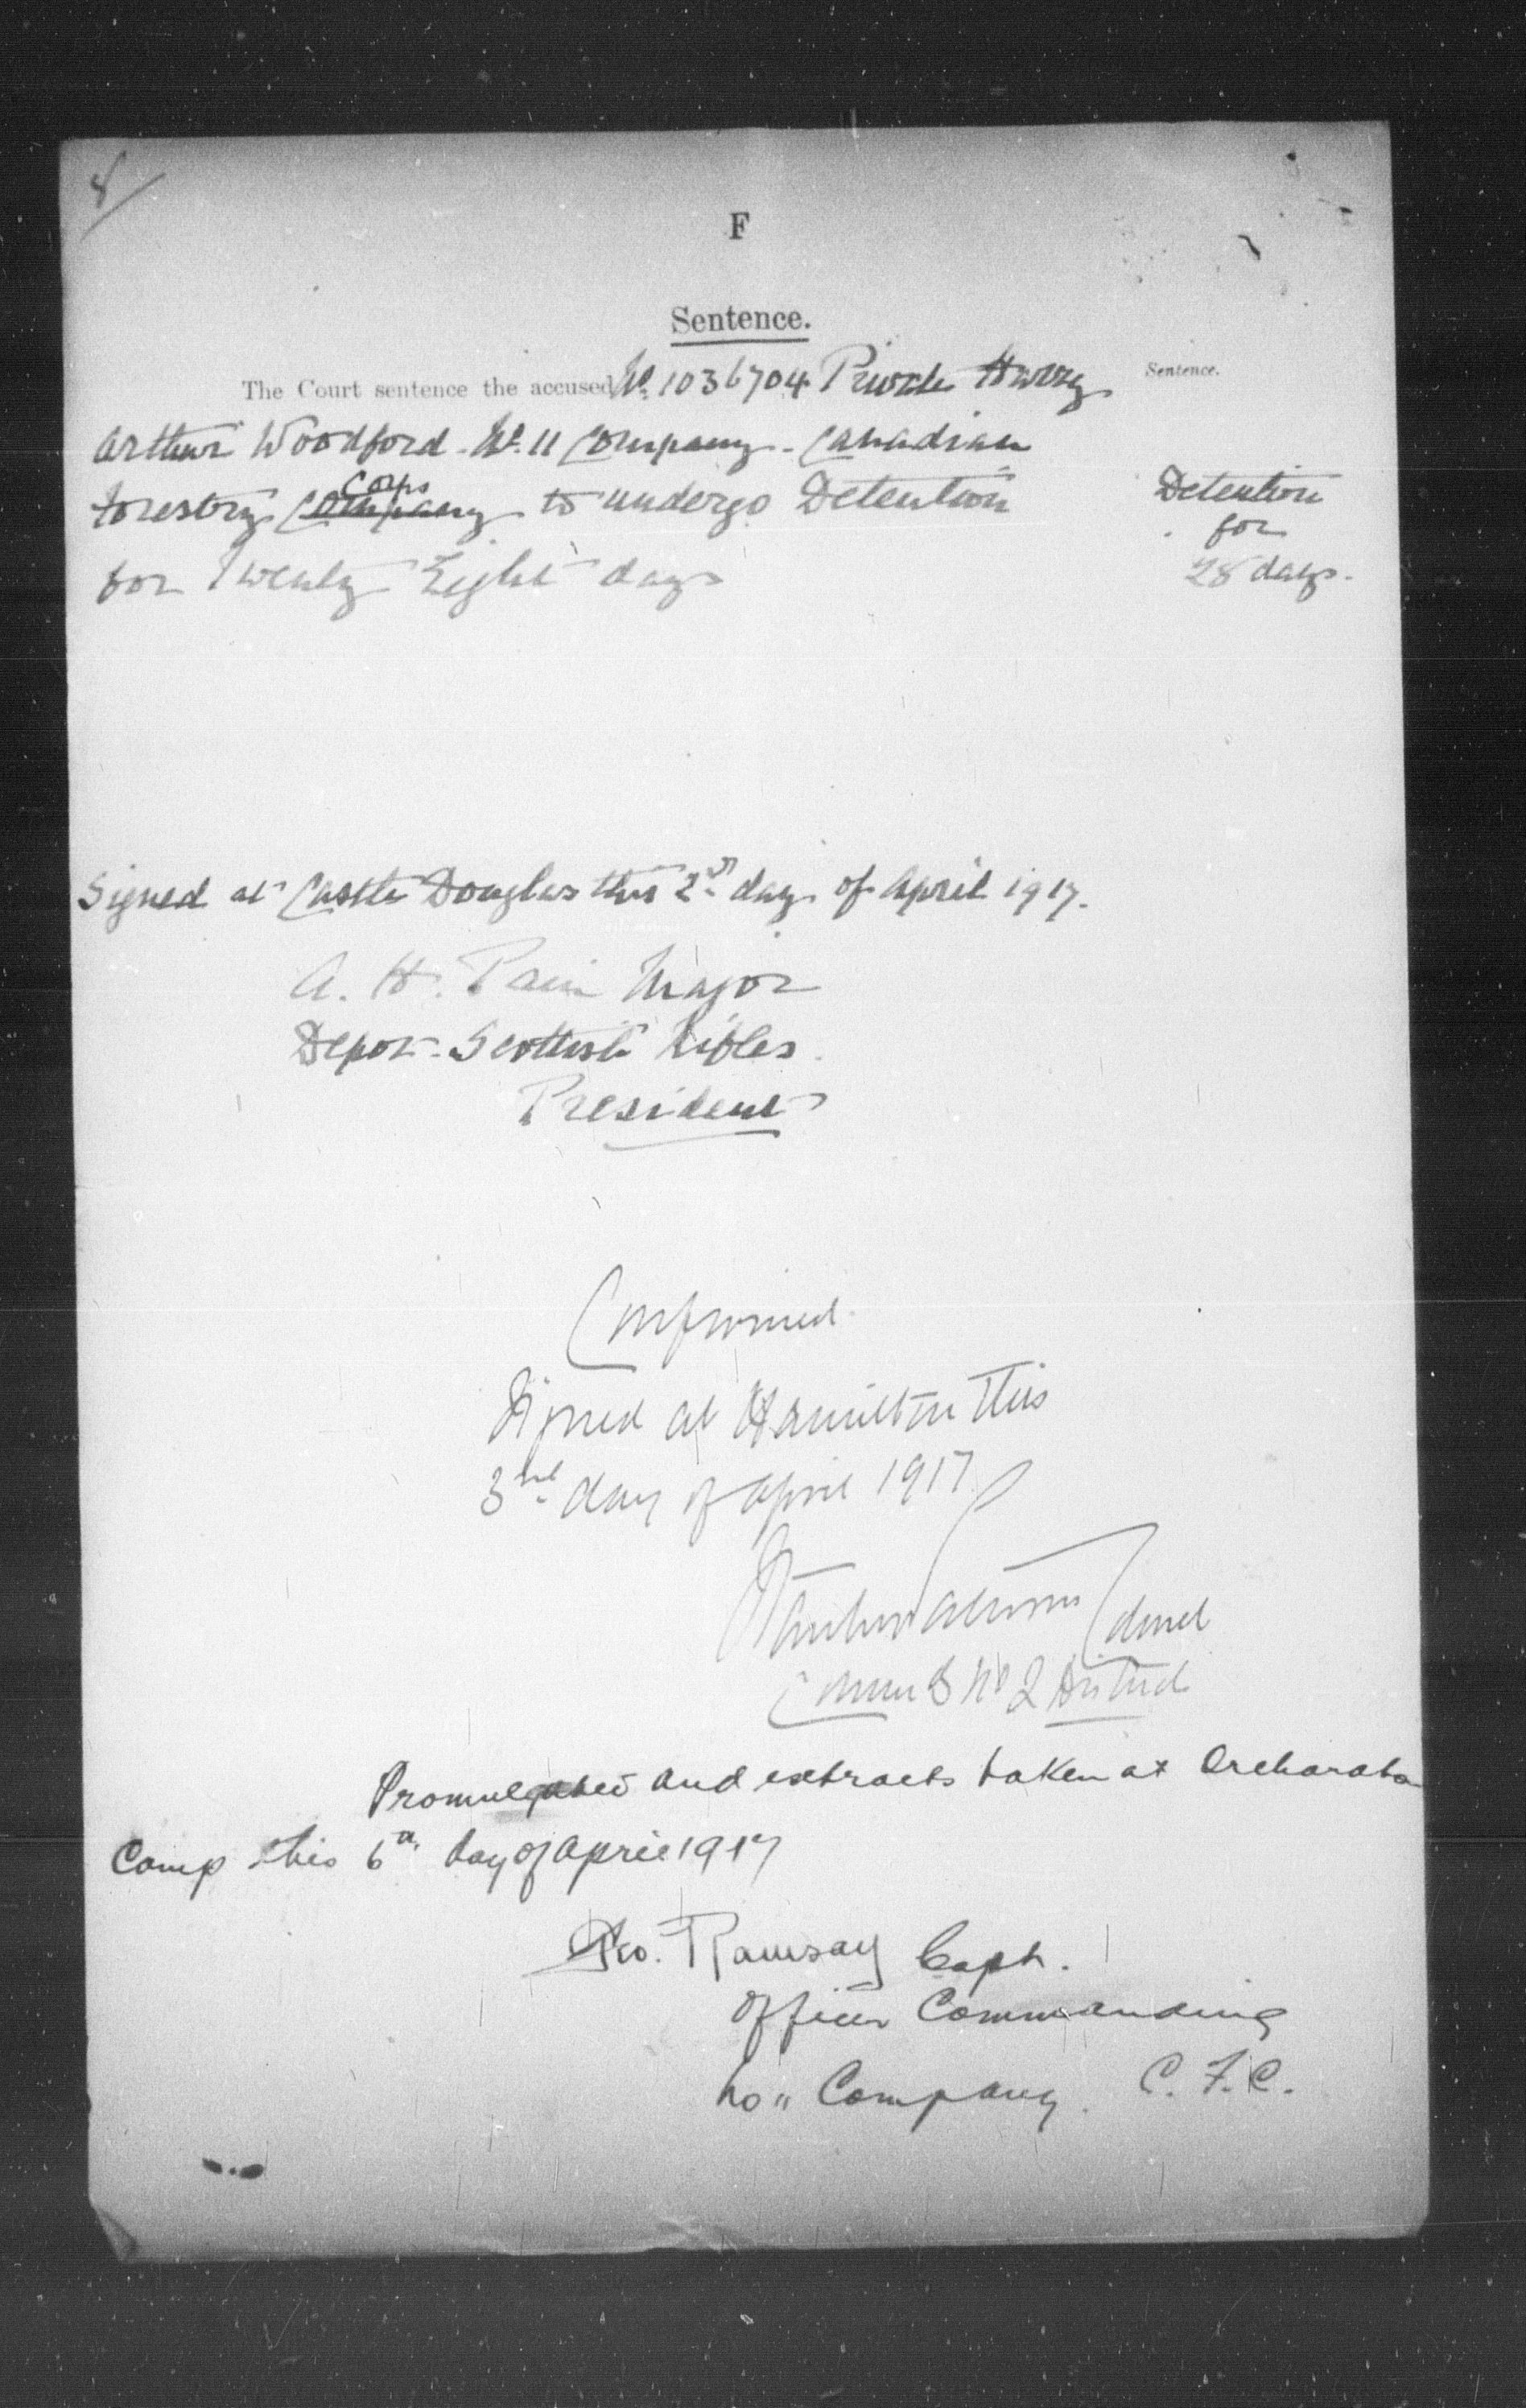 8
F
Sentence.
The Court sentence the accused No. 1036704 Private Harry
Sentence.
Arthur Woodford - No. 11 Company - Canadian
Forestry Company Corps to undergo Detention
Detention
for
for Twenty Eight days
28 days.
Signed at Castle Douglas this 2nd day of April 1917.
A. H. Pain Major
Depot Scottish Rifles.
President
Confirmed
Signed at Hamilton this
3rd day of April 1917
Colonel
No 2 District
Promulgated and extracts taken at
Camp this 6th day of April 1917
Geo. Ramsay Capt.
Officer Commanding
No 11 Company. C. F. C.